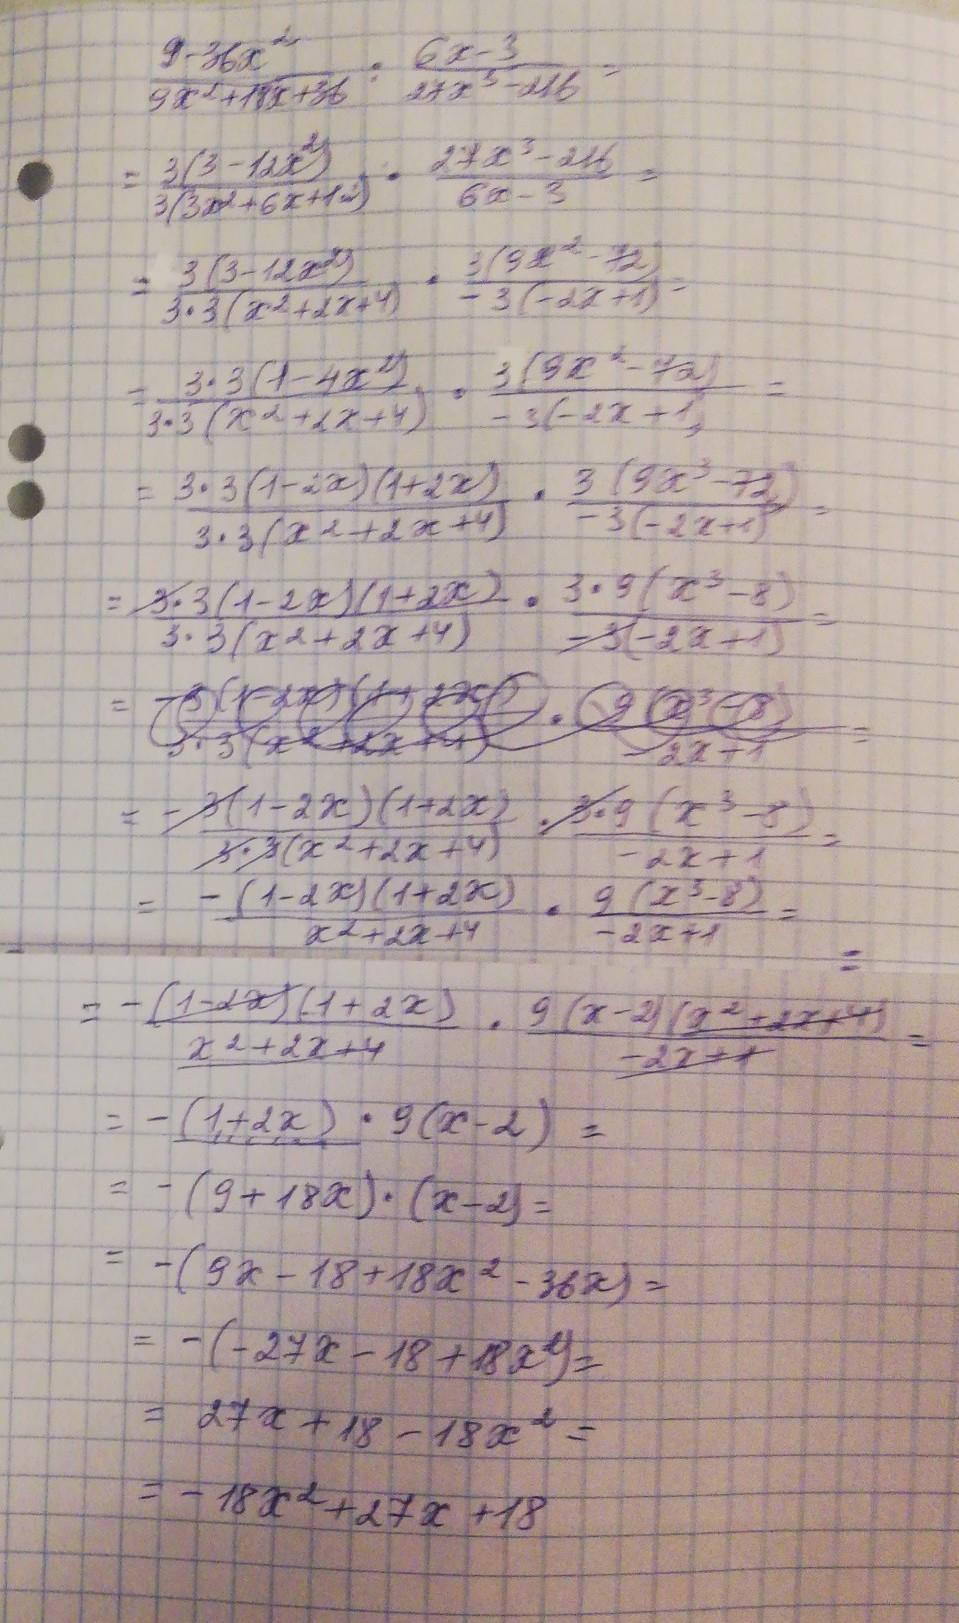 9-36x² / 9x²+18x+36 : 6x-3 / 27x³-216 =
= 3(3-12x²) / 3(3x²+6x+12) · 27x³-216 / 6x-3 =
= 3(3-12x²) / 3·3(x²+2x+4) · 3(9x²-72) / -3(-2x+1) =
= 3·3(1-4x²) / 3·3(x²+2x+4) · 3(9x²-72) / -3(-2x+1) =
= 3·3(1-2x)(1+2x) / 3·3(x²+2x+4) · 3(9x³-72) / -3(-2x+1) =
= 3·3(1-2x)(1+2x) / 3·3(x²+2x+4) · 3·9(x³-8) / -3(-2x+1) =
= -3(1-2x)(1+2x) / 3·3(x²+2x+4) · 9(x³-8) / -2x+1 =
= -3(1-2x)(1+2x) / 3·3(x²+2x+4) · 3·9(x³-8) / -2x+1 =
= -(1-2x)(1+2x) / x²+2x+4 · 9(x³-8) / -2x+1 =
=
= -(1-2x)(1+2x) / x²+2x+4 · 9(x-2)(x²+2x+4) / -2x+1 =
= -(1+2x) · 9(x-2) =
= -(9+18x)·(x-2) =
= -(9x-18+18x²-36x) =
= -(-27x-18+18x²) =
= 27x+18-18x² =
= -18x²+27x+18